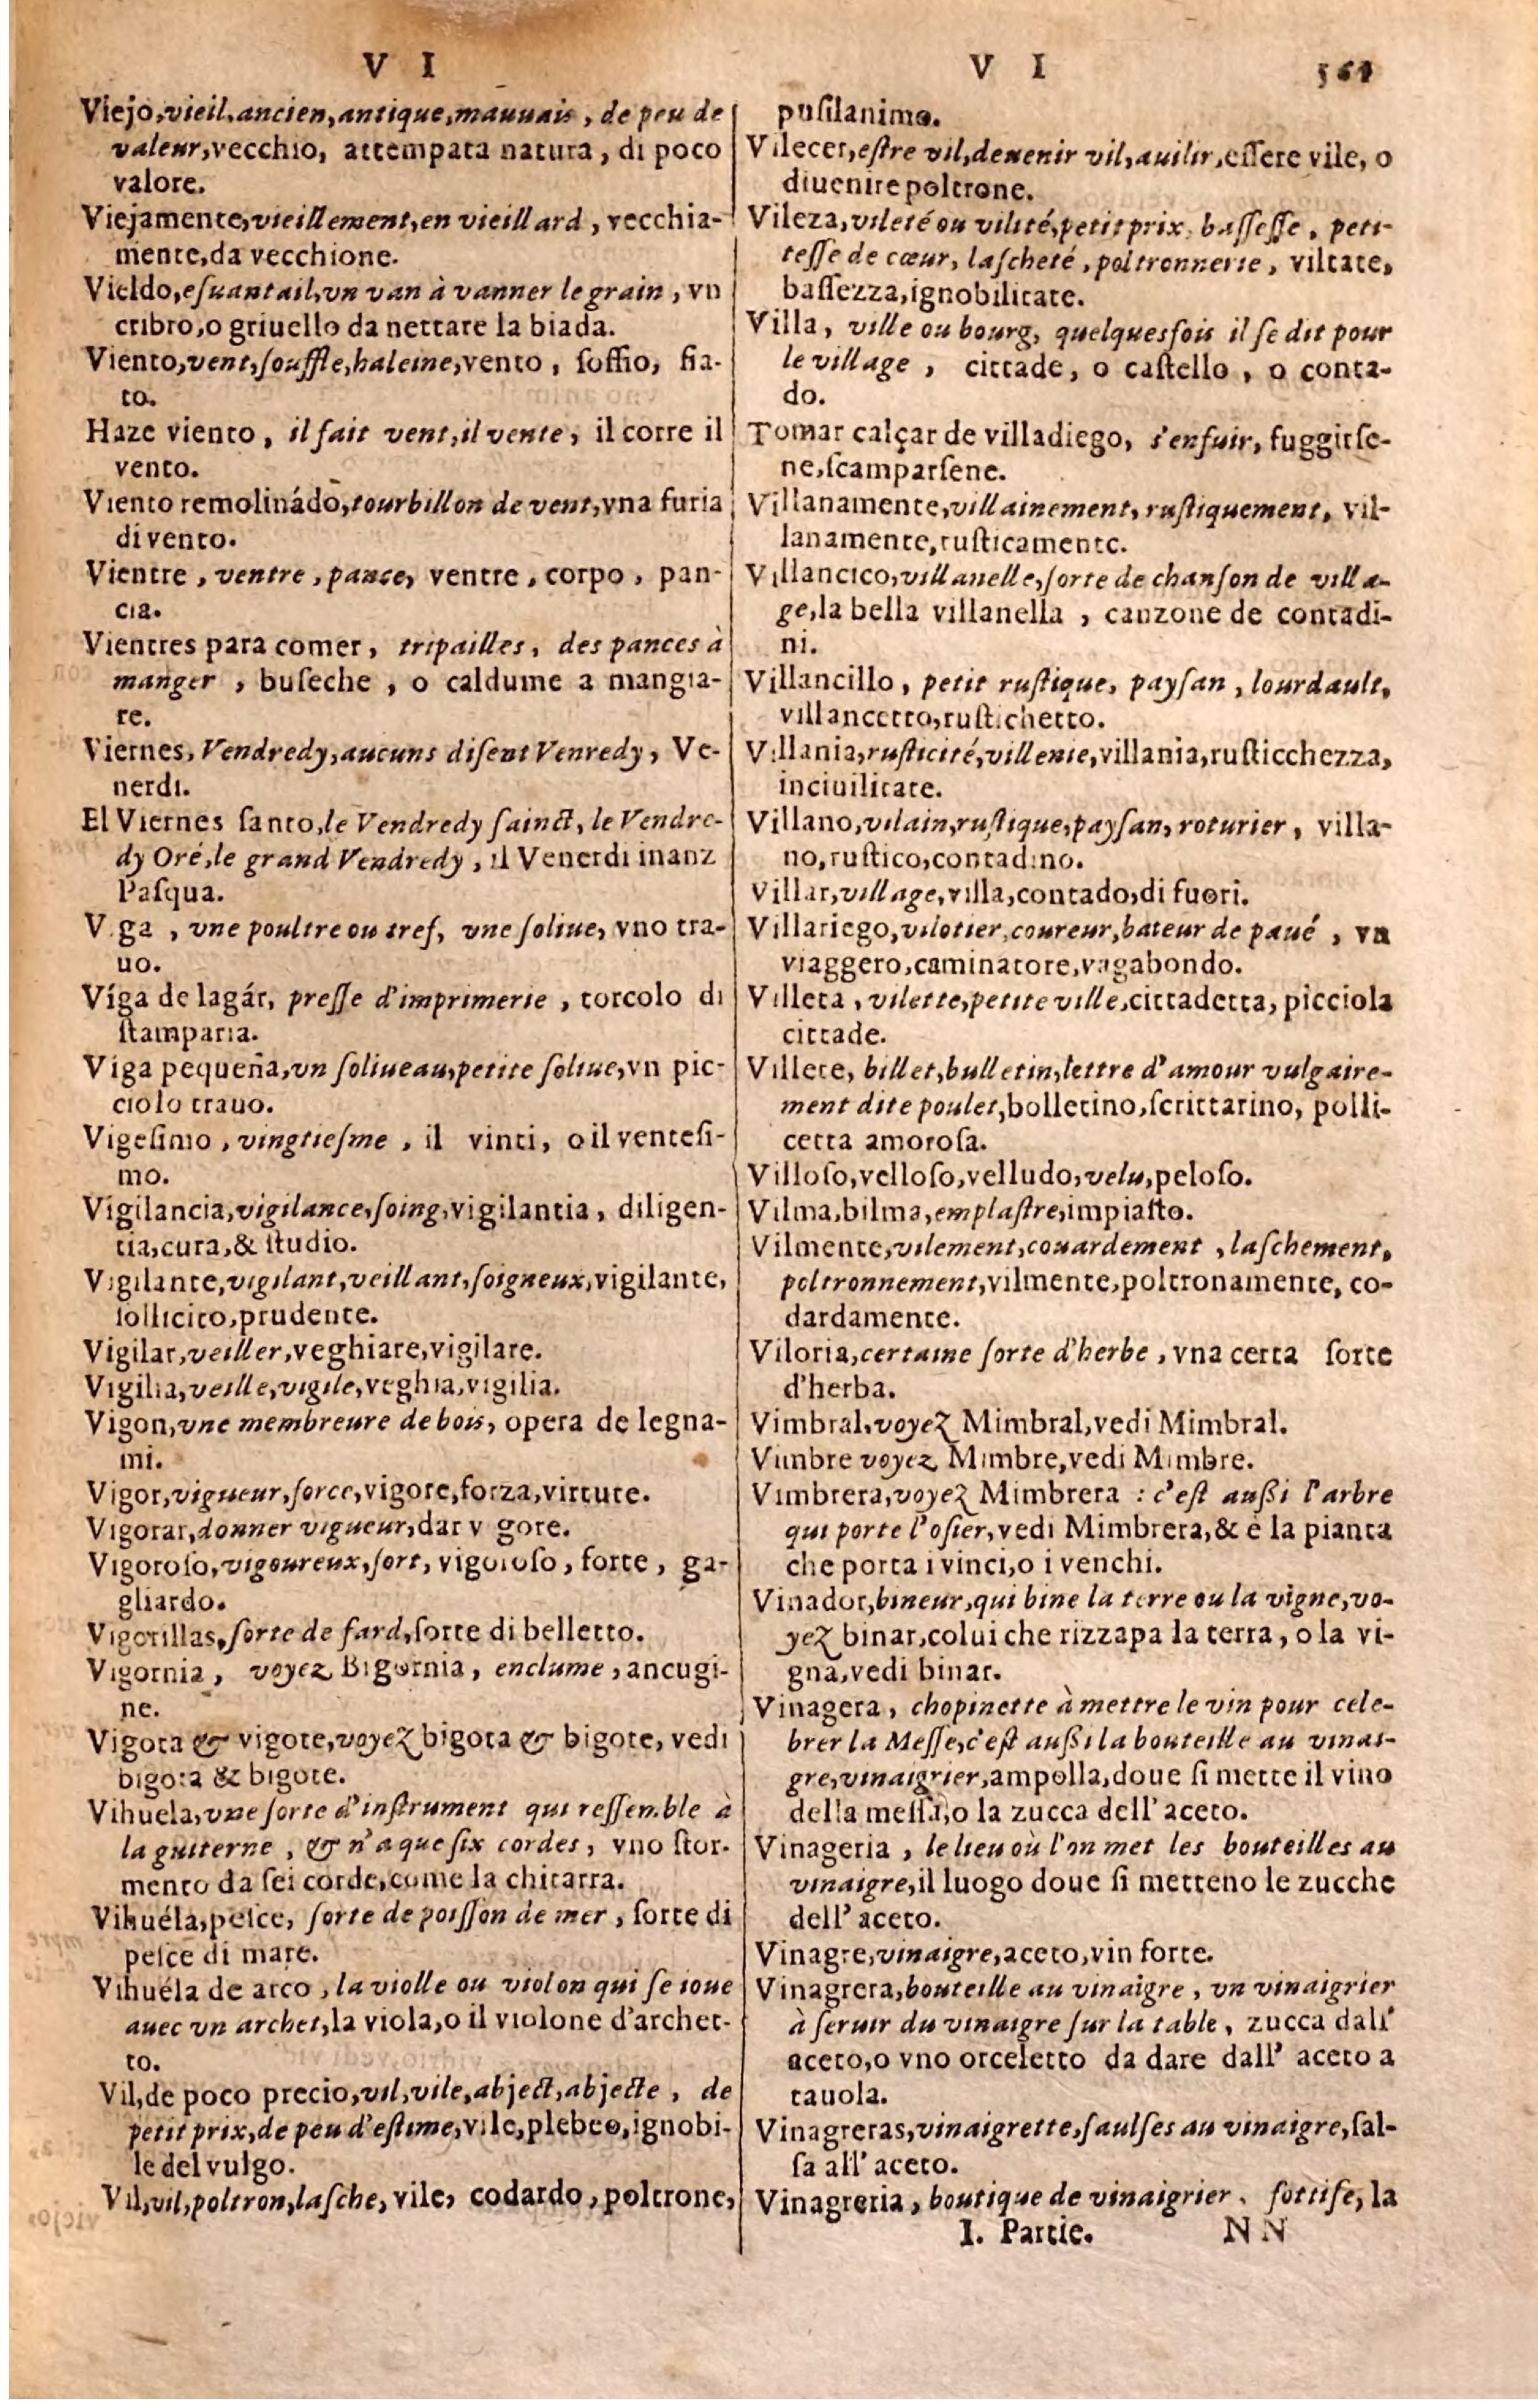 V I
Viejo,vieil,ancien,antique,mauuais, de peu de
valeur,vecchio, attempata natura, di poco
valore.
Viejamente,vieillement,en vieillard, vecchia-
mente,da vecchione.
Vieldo,esuantail,vn van à vanner le grain, vn
cribro,o griuello da nettare la biada.
Viento,vent,souffle,haleine,vento, soffio, fia-
to.
Haze viento, il fait vent,il vente, il corre il
vento.
Viento remolinádo,tourbillon de vent,vna furia
di vento.
Vientre, ventre, pance, ventre, corpo, pan-
cia.
Vientres para comer, tripailles, des pances à
manger, buseche, o caldume a mangia-
re.
Viernes, Vendredy,aucuns disent Venredy, Ve-
nerdi.
El Viernes santo,le Vendredy sainct, le Vendre-
dy Oré,le grand Vendredy, il Venerdi inanz
Pasqua.
V ga, vne poultre ou tref, vne soliue, vno tra-
uo.
Víga de lagár, presse d'imprimerie, torcolo di
stamparia.
Viga pequeña,vn soliueau,petite soliue,vn pic-
ciolo trauo.
Vigesimo, vingtiesme, il vinti, o il ventesi-
mo.
Vigilancia,vigilance,soing,vigilantia, diligen-
tia,cura,& studio.
Vigilante,vigilant,veillant,soigneux,vigilante,
sollicito,prudente.
Vigilar,veiller,veghiare,vigilare.
Vigilia,veille,vigile,veghia,vigilia.
Vigon,vne membreure de bois, opera de legna-
mi.
Vigor,vigueur,force,vigore,forza,virtute.
Vigorar,donner vigueur,dar v gore.
Vigoroso,vigoureux,fort, vigoroso, forte, ga-
gliardo.
Vigorillas,sorte de fard,sorte di belletto.
Vigornia, voyez Bigornia, enclume, ancugi-
ne.
Vigota & vigote,voyez bigota & bigote, vedi
bigota & bigote.
Vihuela,vne sorte d'instrument qui ressemble à
la guiterne, & n'a que six cordes, vno stor-
mento da sei corde,come la chitarra.
Vihuéla,pesce, sorte de poisson de mer, sorte di
pesce di mare.
Vihuéla de arco, la violle ou violon qui se ioue
auec vn archet,la viola,o il violone d'archet-
to.
Vil,de poco precio,vil,vile,abject,abjecte, de
petit prix,de peu d'estime,vile,plebeo,ignobi-
le del vulgo.
Vil,vil,poltron,lasche, vile, codardo, poltrone,
V I 561
pusilanimo.
Vilecer,estre vil,deuenir vil,auilir,essere vile, o
diuenire poltrone.
Vileza,vileté ou vilité,petit prix, bassesse, peti-
tesse de cœur, lascheté, poltronnerie, viltate,
bassezza,ignobilitate.
Villa, ville ou bourg, quelquesfois il se dit pour
le village, cittade, o castello, o conta-
do.
Tomar calçar de villadiego, s'enfuir, fuggirse-
ne,scamparsene.
Villanamente,villainement, rustiquement, vil-
lanamente,rusticamente.
Villancico,villanelle,sorte de chanson de villa-
ge,la bella villanella, canzone de contadi-
ni.
Villancillo, petit rustique, paysan, lourdault,
villancetto,rustichetto.
Villania,rusticité,villenie,villania,rusticchezza,
inciuilitate.
Villano,vilain,rustique,paysan,roturier, villa-
no,rustico,contadino.
Villar,village,villa,contado,di fuori.
Villariego,vilotier,coureur,bateur de paué, vn
viaggero,caminatore,vagabondo.
Villeta, vilette,petite ville,cittadetta, picciola
cittade.
Villete, billet,bulletin,lettre d'amour vulgaire-
ment dite poulet,bolletino,scrittarino, polli-
cetta amorosa.
Villoso,velloso,velludo,velu,peloso.
Vilma,bilma,emplastre,impiasto.
Vilmente,vilement,couardement, laschement,
poltronnement,vilmente,poltronamente, co-
dardamente.
Viloria,certaine sorte d'herbe, vna certa sorte
d'herba.
Vimbral,voyez Mimbral,vedi Mimbral.
Vimbre voyez Mimbre,vedi Mimbre.
Vimbrera,voyez Mimbrera : c'est aussi l'arbre
qui porte l'osier,vedi Mimbrera,& è la pianta
che porta i vinci,o i venchi.
Vinador,bineur,qui bine la terre ou la vigne,vo-
yez binar,colui che rizzapa la terra, o la vi-
gna,vedi binar.
Vinagera, chopinette à mettre le vin pour cele-
brer la Messe,c'est aussi la bouteille au vinai-
gre,vinaigrier,ampolla,doue si mette il vino
della messa,o la zucca dell'aceto.
Vinageria, le lieu où l'on met les bouteilles au
vinaigre,il luogo doue si metteno le zucche
dell'aceto.
Vinagre,vinaigre,aceto,vin forte.
Vinagrera,bouteille au vinaigre, vn vinaigrier
à seruir du vinaigre sur la table, zucca dall'
aceto,o vno orceletto da dare dall' aceto a
tauola.
Vinagreras,vinaigrette,saulses au vinaigre,sal-
sa all' aceto.
Vinagreria, boutique de vinaigrier, sottise, la
I. Partie. NN